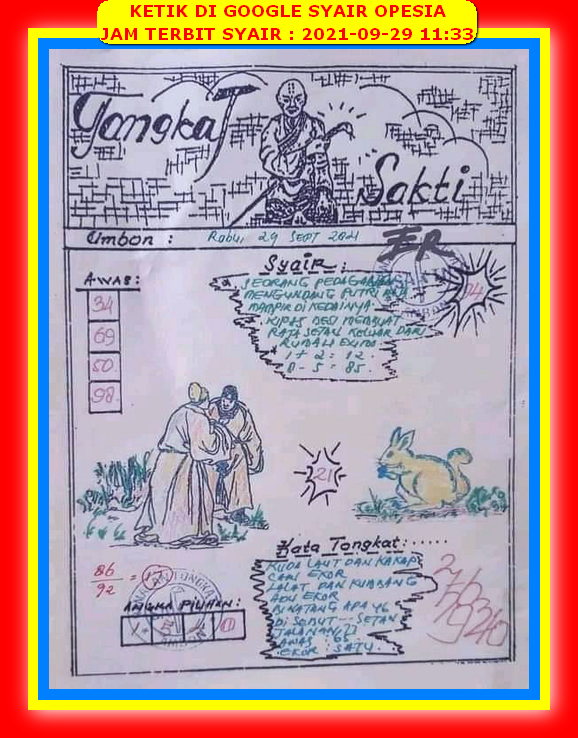 KETIK DI GOOGLE SYAIR OPESIA
JAM TERBIT SYAIR : 2021-09-29 11:33
Tongkat
Sakti
Umbon :
Rabu, 29 SEPT 2021
Syair :
SEORANG PEDAGANG
MENGUNDANG PUTRI
MAMPIR DI KEDAINYA
KIPAS BESI
RAJA SETAN KELUAR DARI
RUMAH
1 + 2 = 12.
8 - 5 = 85.
AWAS :
34
69
50.
98.
21
86
92
= 17
ANGKA PILIHAN :
Kata Tongkat :
KUDA LAUT DAN KAKAP
CARI EKOR
LALAT DAN KUMBANG
ADU EKOR
BINATANG APA YG
DI SEBUT SETAN
JALANAN ??
AWAS : 85
EKOR : SATU